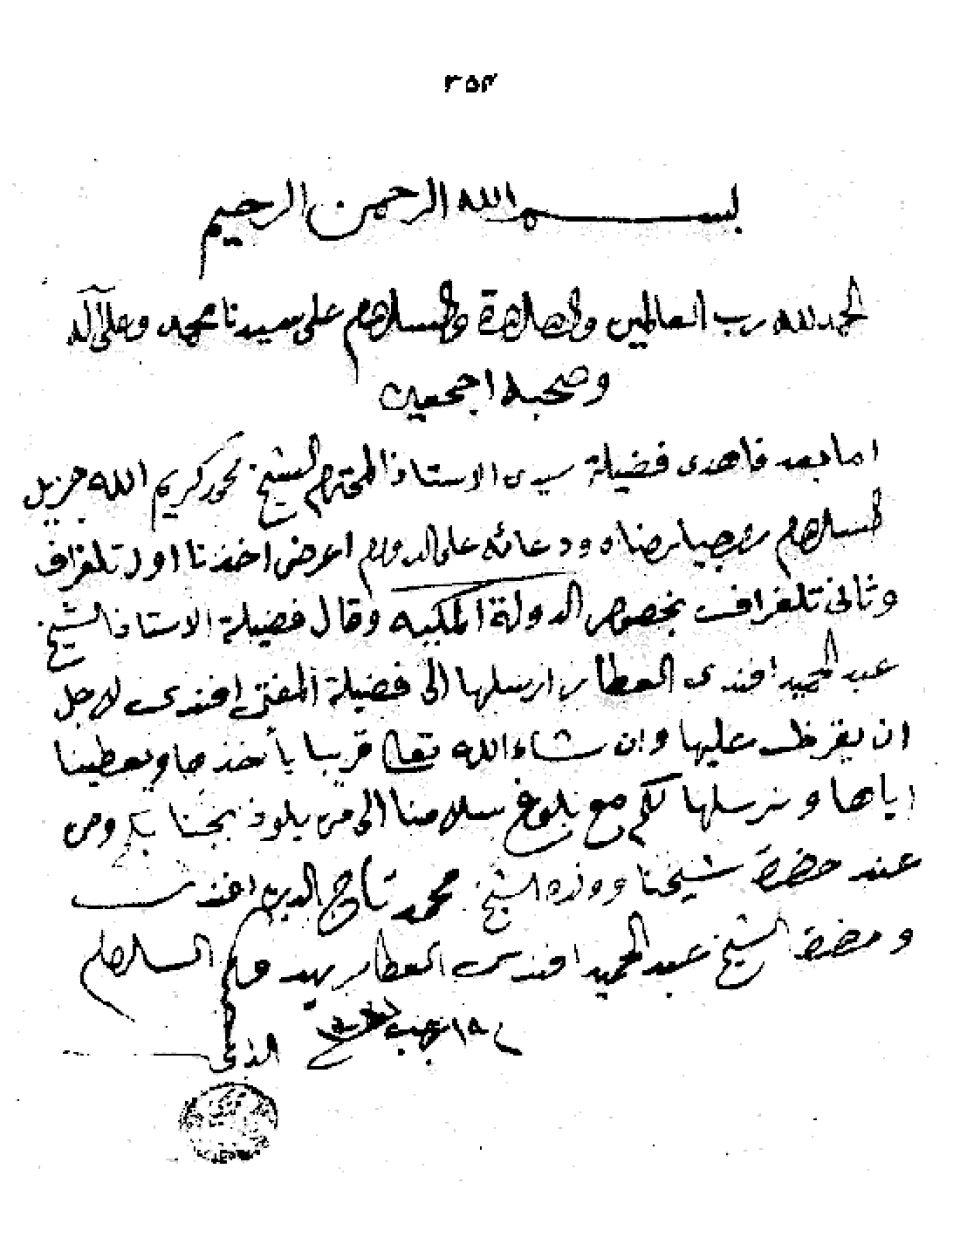 ٣٥٣
بسم الله الرحمن الرحيم
الحمد لله رب العالمين والصلاة والسلام على سيدنا محمد وعلى آله
وصحبه اجمعين
اما بعد فاهدى فضيلة سيدى الاستاذ المحترم الشيخ محمد كريم الله جزيل
السلام ودعائه على الدوام اعرض اخذنا اول تلغراف
وثانى تلغراف بخصوص الدولة المكيه وقال فضيلة الاستاذ الشيخ
عبد الحميد افندى العطار ارسلها الى فضيلة المفتى افندى لاجل
ان يقرظ عليها وان شاء الله تعالى قريبا يأخذها ويعطينا
اياها ونرسلها لكم مع بلوغ سلامنا الى من يلوذ بجنابكم ومن
عند حضرة شيخنا الشيخ محمد تاج الدين افندى
وحضرة الشيخ عبد الحميد افندى العطار والسلام
١٥ رجب